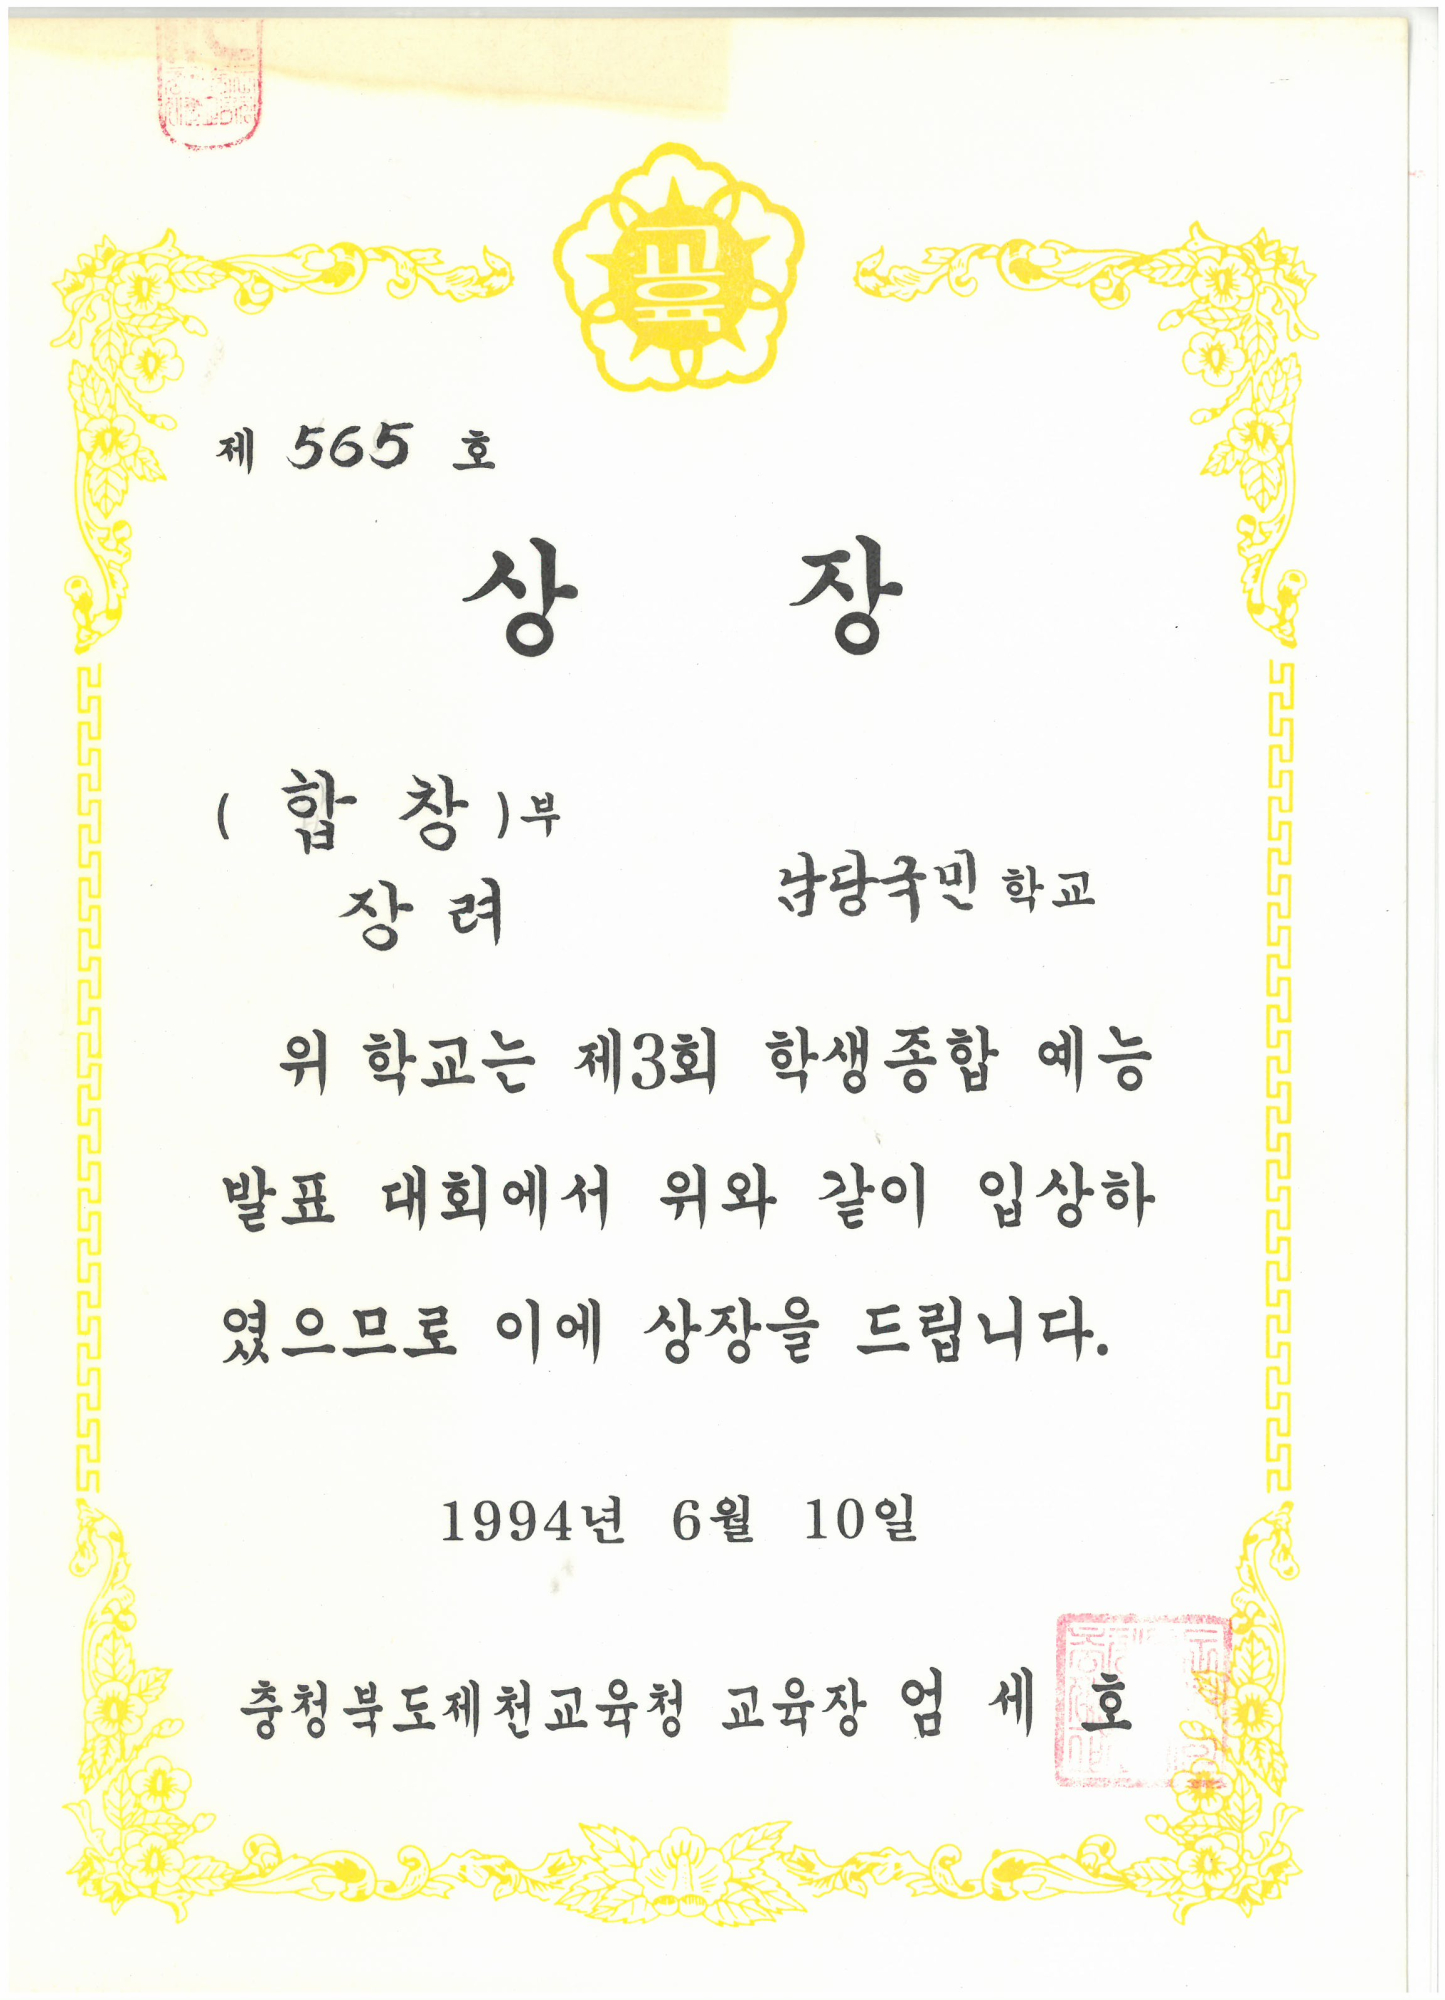 교육
제 565 호
상 장
( 합 창 ) 부
장 려
남당국민 학교
위 학교는 제3회 학생종합 예능
발표 대회에서 위와 같이 입상하
였으므로 이에 상장을 드립니다.
1994년 6월 10일
충청북도제천교육청 교육장 엄 세 호